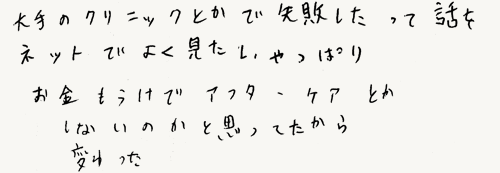 大手のクリニックとかで失敗したって話を
ネットでよく見たし、やっぱり
お金もうけでアフターケアとか
しないのかと思ってたから
変わった